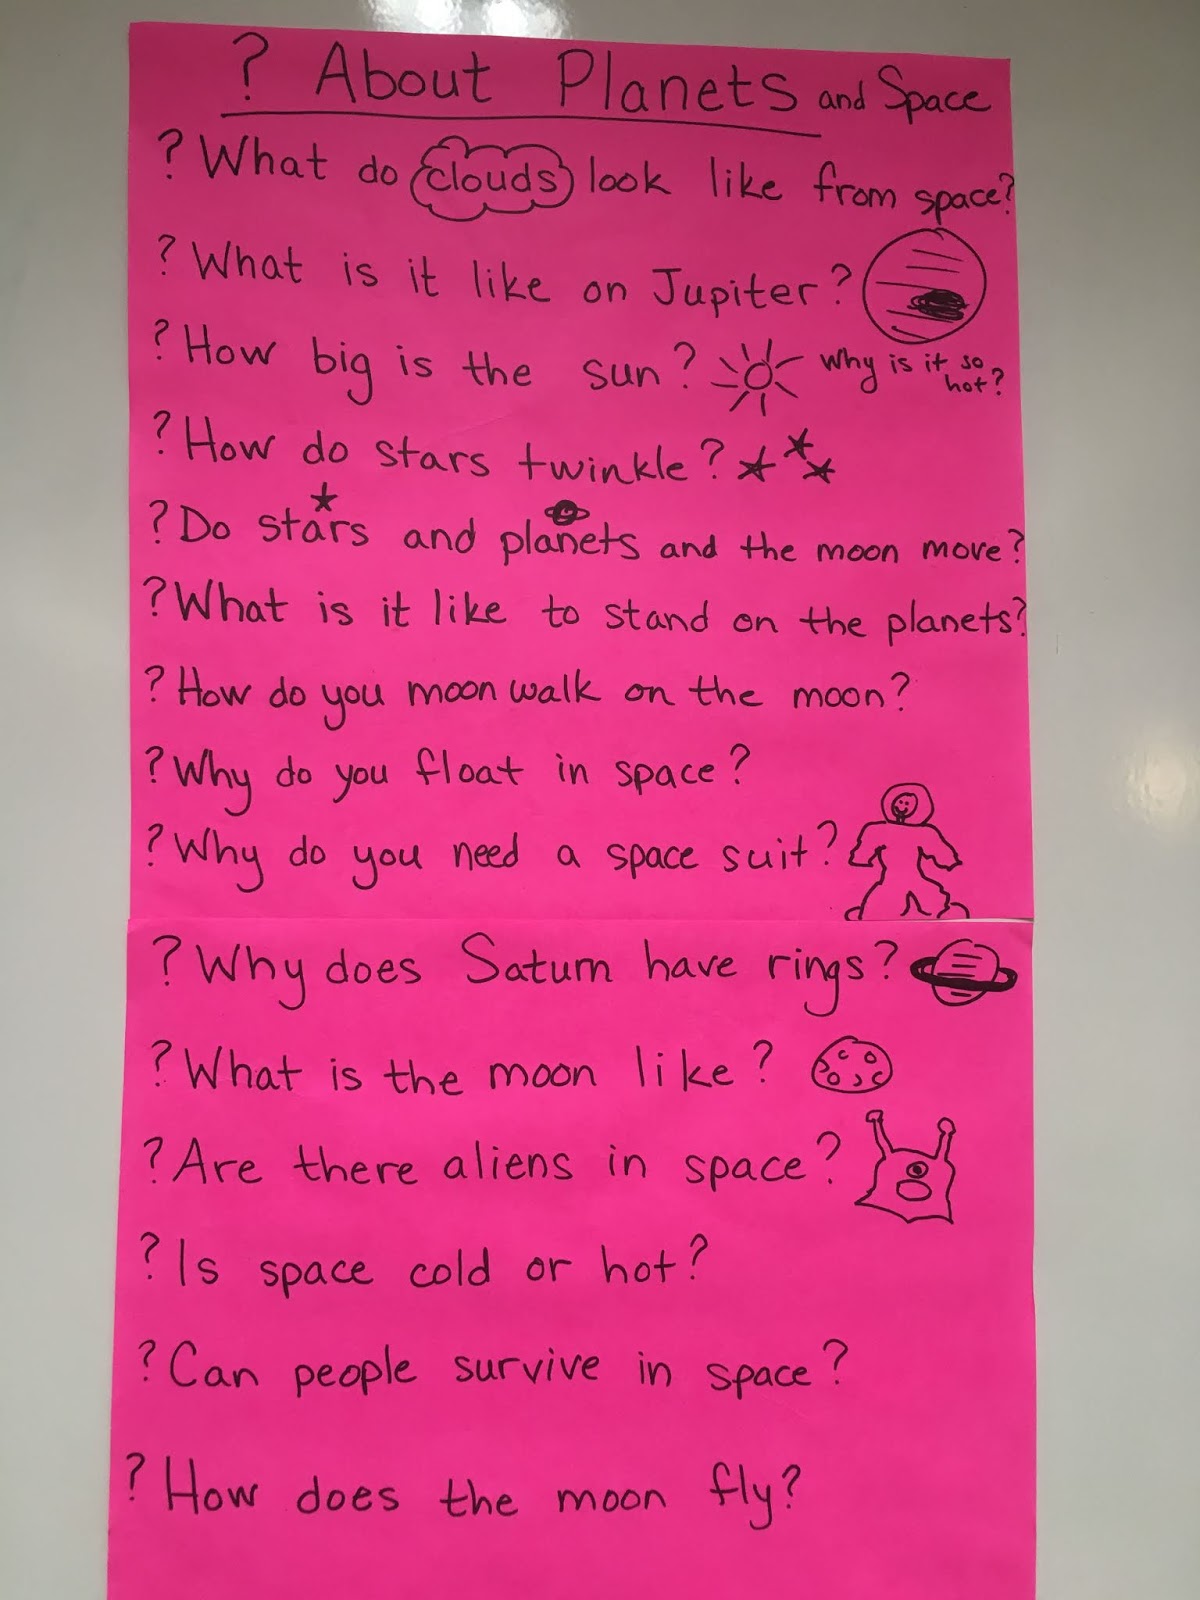 ? About Planets and Space
? What do clouds look like from space?
? What is it like on Jupiter?
? How big is the sun? Why is it so
hot?
? How do stars twinkle?
? Do stars and planets and the moon move?
? What is it like to stand on the planets?
? How do you moon walk on the moon?
? Why do you float in space?
? Why do you need a space suit?
? Why does Saturn have rings?
? What is the moon like?
? Are there aliens in space?
? Is space cold or hot?
? Can people survive in space?
? How does the moon fly?